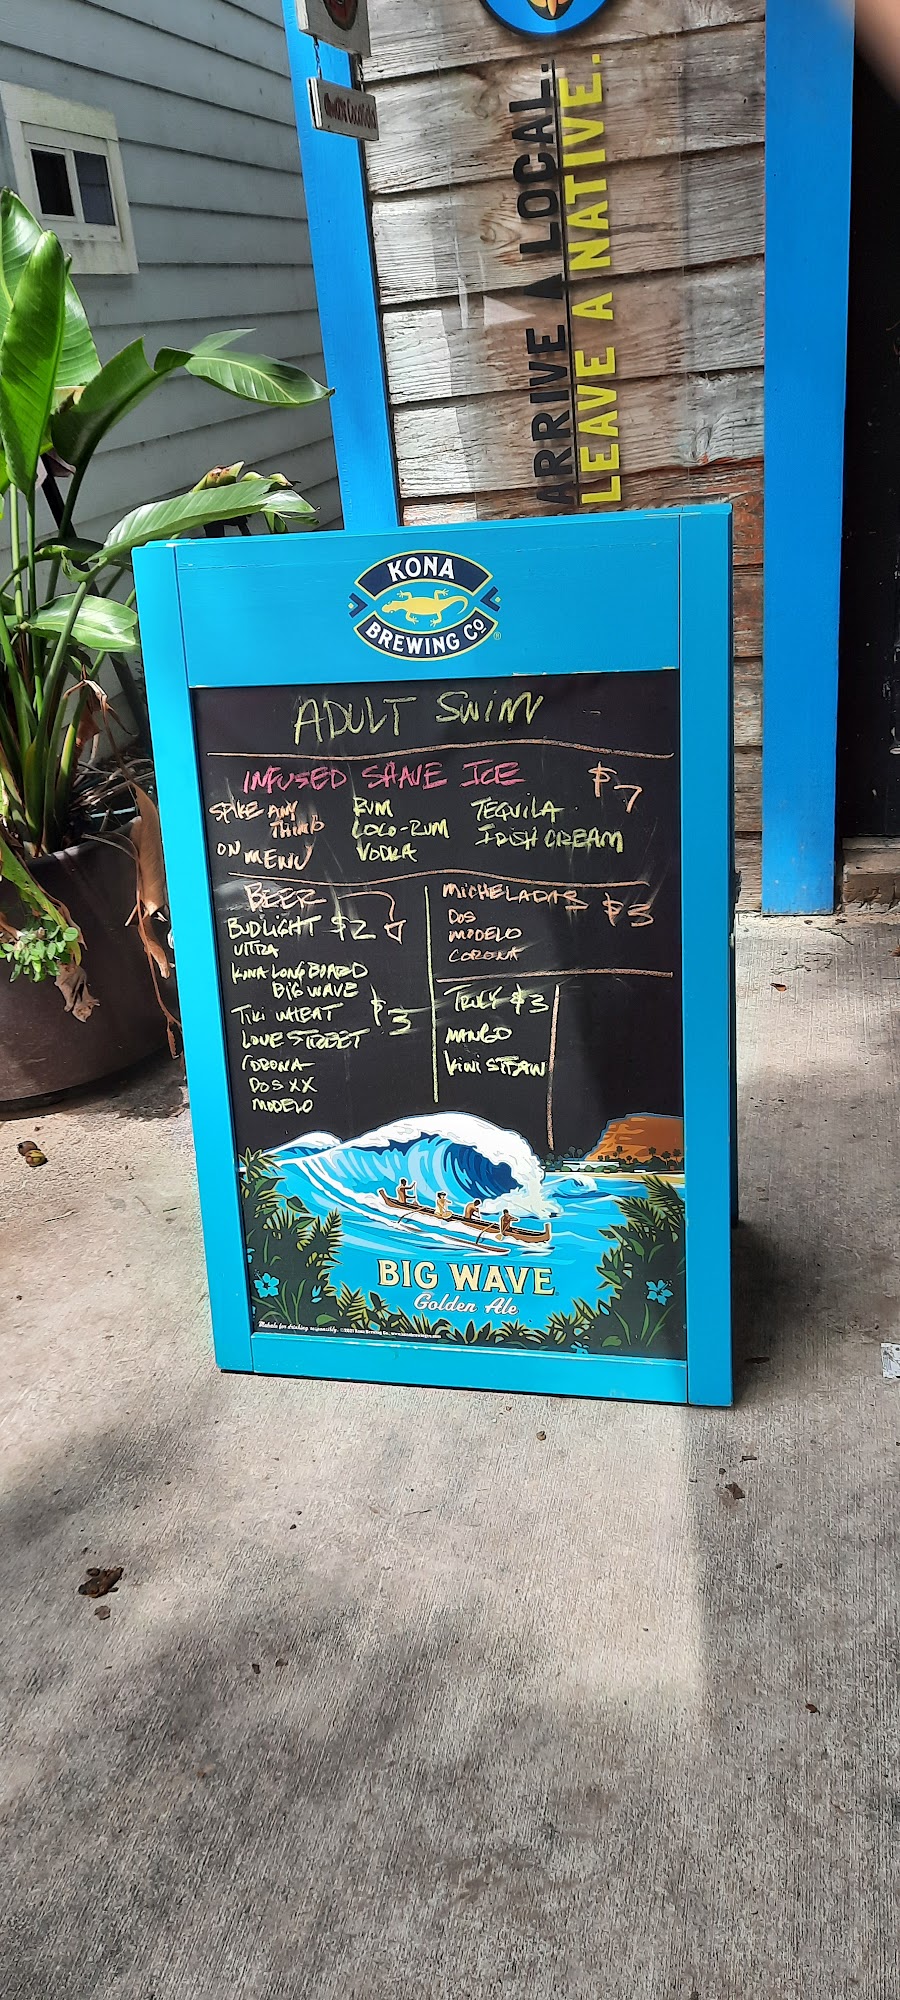 ARRIVE A LOCAL.
LEAVE A NATIVE.
KONA
BREWING CO®
ADULT SWIM
INFUSED SHAVE ICE $7
SPIKE ANY
THING
ON MENU
RUM
COCO-RUM
VODKA
TEQUILA
IRISH CREAM
BEER
BUD LIGHT $2
ULTRA
KONA LONGBOARD
BIG WAVE
TIKI WHEAT $3
LOVE STREET
CORONA
DOS XX
MODELO
MICHELADAS $3
DOS
MODELO
CORONA
TRULY $3
MANGO
KIWI STRAW
BIG WAVE
Golden Ale
Mahalo for drinking responsibly.